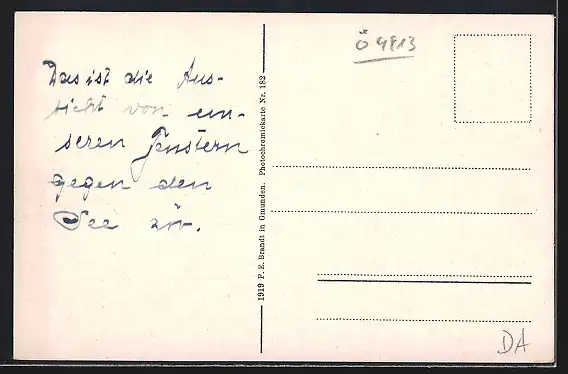 Das ist die Aus-
sicht von un-
seren Fenstern
gegen den
See zu.
1919 F. E. Brandt in Gmunden. Photochromiekarte Nr. 182
Ö 4813
DA